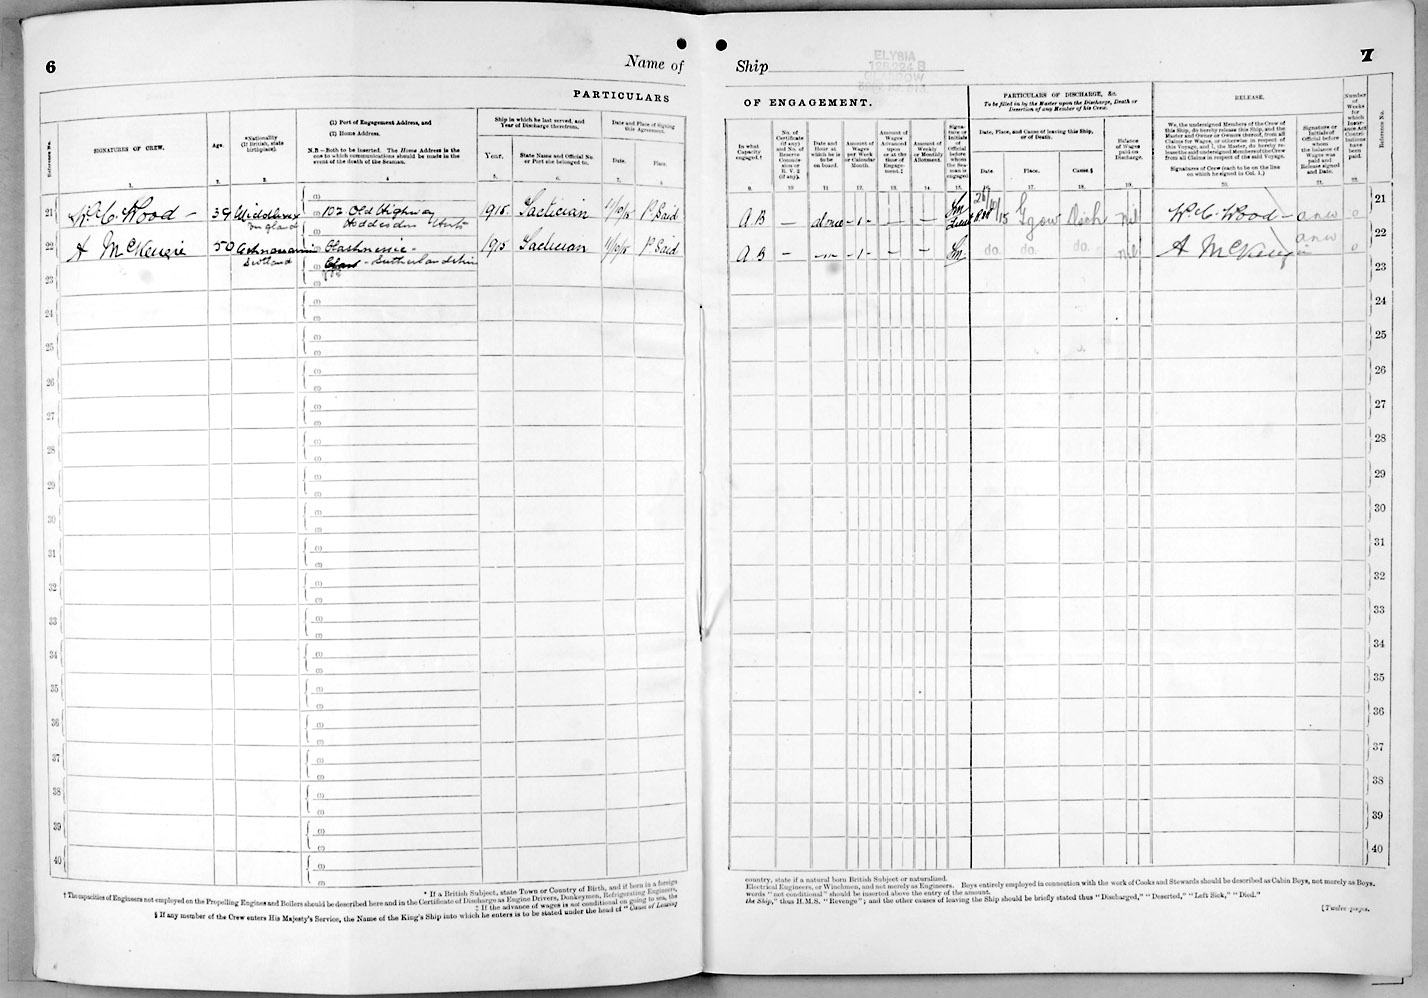 6
Name of
PARTICULARS
Reference No.
SIGNATURES OF CREW.
Age.
*Nationality
(If British, state
birthplace).
(1) Port of Engagement Address, and
(2) Home Address.
N.B.—Both to be inserted. The Home Address is the
one to which communications should be made in the
event of the death of the Seaman.
Ship in which he last served, and
Year of Discharge therefrom.
Year.
State Name and Official No.
or Port she belonged to.
Date and Place of Signing
this Agreement.
Date.
Place.
1.
2.
3.
4
5.
6.
7.
8.
21 W. C. Wood - 39 Middlesex 102 Old Highway 1915. Lactician 11/10/15 P. Said
England Hoddesdon Herts
22 A McKenzie 50 Clashnessie - 1915 Lactician 11/10/15 P Said
Scotland - Sutherlandshire
23
24
25
26
27
28
29
30
31
32
33
34
35
36
37
38
39
40
* If a British Subject, state Town or Country of Birth, and if born in a foreign
† The capacities of Engineers not employed on the Propelling Engines and Boilers should be described here and in the Certificate of Discharge as Engine Drivers, Donkeymen, Refrigerating Engineers,
‡ If the advance of wages is not conditional on going to sea, the
§ If any member of the Crew enters His Majesty's Service, the Name of the King's Ship into which he enters is to be stated under the head of "Cause of Leaving
7
Ship
ELYSIA
GLASGOW
OF ENGAGEMENT.
PARTICULARS OF DISCHARGE, &c.
To be filled in by the Master upon the Discharge, Death or
Desertion of any Member of his Crew.
RELEASE.
In what
Capacity
engaged.†
No. of
Certificate
(if any)
and No. of
Reserve
Commis-
sion or
R. V. 2
(if any).
Date and
Hour at
which he is
to be
on board.
Amount of
Wages
per Week
or Calendar
Month.
Amount of
Wages
Advanced
upon
or at the
time of
Engage-
ment.‡
Amount of
Weekly
or Monthly
Allotment.
Signa-
ture or
Initials
of
Official
before
whom
the Sea-
man is
engaged
Date, Place, and Cause of leaving this Ship,
or of Death.
Date.
Place.
Cause.§
Balance
of Wages
paid on
Discharge.
We, the undersigned Members of the Crew of
this Ship, do hereby release this Ship, and the
Master and Owner or Owners thereof, from all
Claims for Wages, or otherwise in respect of
this Voyage, and I, the Master, do hereby re-
lease the said undersigned Members of the Crew
from all Claims in respect of the said Voyage.
Signatures of Crew (each to be on the line
on which he signed in Col. 1.)
Signature or
Initials of
Official before
whom
the balance of
Wages was
paid and
Release signed
and Date.
Number
of
Weeks
for
which
Insur-
ance Act
Contri-
butions
have
been
paid.
Reference No.
9.
10
11
12.
13.
14.
15.
17.
18.
19.
20.
21.
22.
A B - at once - 1 - - - Ggow Disch Nil W. C. Wood - 21
A B - - 1 - - - do. do. do. Nil A McKenzie 22
23
24
25
26
27
28
29
30
31
32
33
34
35
36
37
38
39
40
country, state if a natural born British Subject or naturalized.
Electrical Engineers, or Winchmen, and not merely as Engineers. Boys entirely employed in connection with the work of Cooks and Stewards should be described as Cabin Boys, not merely as Boys.
words "not conditional" should be inserted above the entry of the amount.
the Ship," thus H.M.S. "Revenge"; and the other causes of leaving the Ship should be briefly stated thus "Discharged," "Deserted," "Left Sick," "Died."
[Twelve pages.